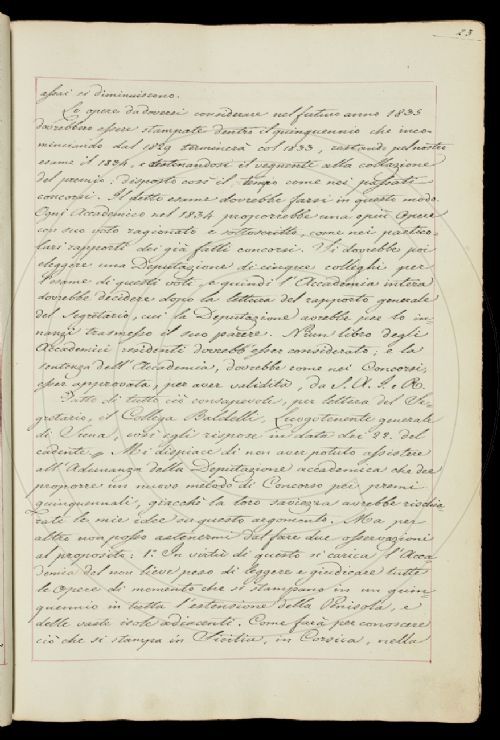 23
assai si diminuiscono.
Le opere da doversi considerare nel futuro anno 1835
dovrebbero essere stampate dentro il quinquennio che inco-
minciando dal 1829 terminerà col 1833, restando pel nostro
esame il 1834, e destinandosi il seguente alla collazione
del premio, disposto così il tempo come nei passati
concorsi. Il detto esame dovrebbe farsi in questo modo.
Ogni Accademico nel 1834 proporrebbe una o più Opere
con suo voto ragionato e sottoscritto, come nei partico-
lari rapporti dei già fatti concorsi. Si dovrebbe poi
eleggere una Deputazione di cinque colleghi per
l'esame di questi voti, e quindi l'Accademia intera
dovrebbe decidere dopo la lettura del rapporto generale
del Segretario, cui la Deputazione avrebbe per lo in-
nanzi trasmesso il suo parere. Niun libro degli
Accademici residenti dovrebb'esser considerato; e la
sentenza dell'Accademia, dovrebbe come nei Concorsi,
esser approvata, per aver validità, da S. A. I. e R.
Fatto di tutto ciò consapevole, per lettera del Se-
gretario, il Collega Baldelli, Luogotenente generale
di Siena, così egli rispose in data dei 22. del
cadente. Mi dispiace di non aver potuto assistere
all'Adunanza della Deputazione accademica che dee
proporre un nuovo metodo di Concorso pei premi
quinquennali, giacchè la loro saviezza avrebbe rischia
rate le mie idee su questo argomento. Ma per
altro non posso astenermi dal fare due osservazioni
al proposito: 1.° In virtù di questo si carica l'Acca-
demia del non lieve peso di leggere e giudicare tutte
le Opere di momento che si stampano in un quin-
quennio in tutta l'estensione della Penisola, e
delle vaste isole adiacenti. Come farà per conoscere
ciò che si stampa in Sicilia, in Corsica, nella